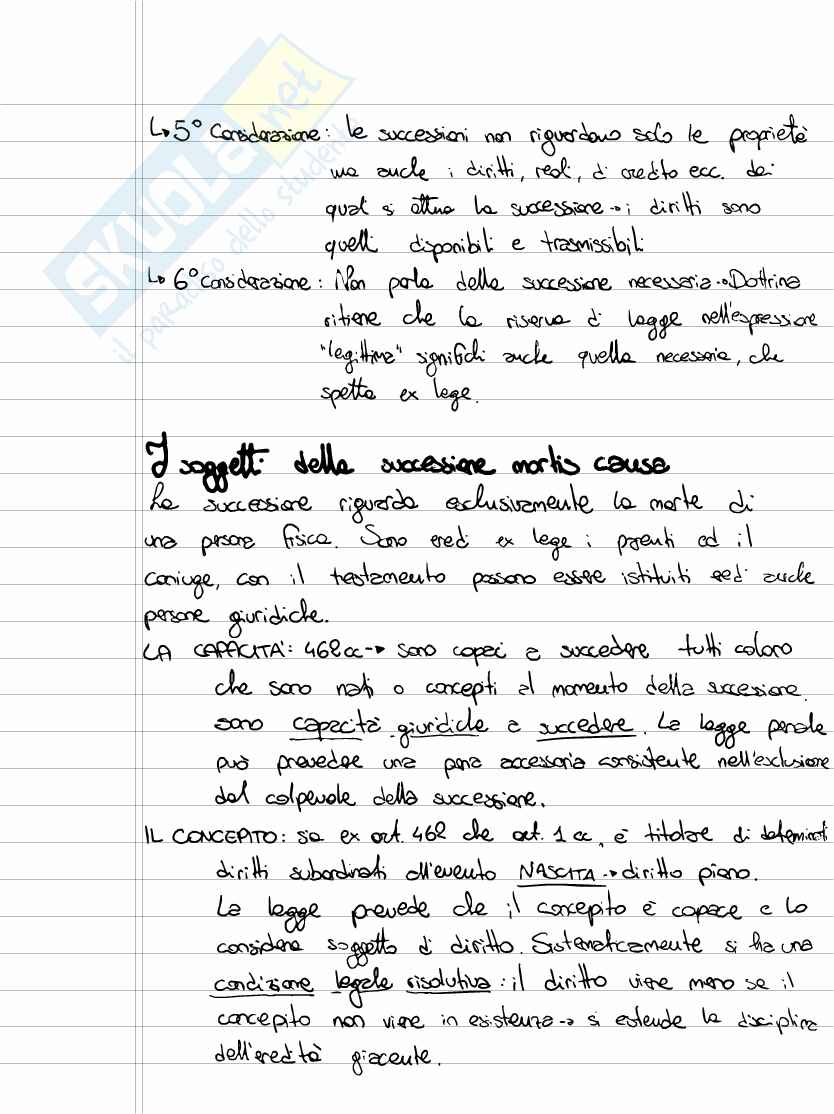 SKUOLA.net
il paradiso dello studente
↳ 5° Considerazione: le successioni non riguardano solo le proprietà
ma anche i diritti, reali, di credito ecc. dei
quali si attua la successione → i diritti sono
quelli disponibili e trasmissibili
↳ 6° considerazione: Non parla della successione necessaria → Dottrina
ritiene che la riserva di legge nell'espressione
"legittima" significhi anche quella necessaria, che
spetta ex lege.
I soggetti della successione mortis causa
La successione riguarda esclusivamente la morte di
una persona fisica. Sono eredi ex lege i parenti ed il
coniuge, con il testamento possono essere istituiti eredi anche
persone giuridiche.
LA CAPACITÀ: 462 cc → sono capaci a succedere tutti coloro
che sono nati o concepiti al momento della successione.
sono capacità giuridiche a succedere. La legge penale
può prevedere una pena accessoria consistente nell'esclusione
del colpevole della successione.
IL CONCEPITO: sa ex art. 462 che art. 1 cc, è titolare di determinati
diritti subordinati all'evento NASCITA → diritto pieno.
La legge prevede che il concepito è capace e lo
considera soggetto di diritto. Sistematicamente si ha una
condizione legale risolutiva: il diritto viene meno se il
concepito non viene in esistenza → si estende la disciplina
dell'eredità giacente.